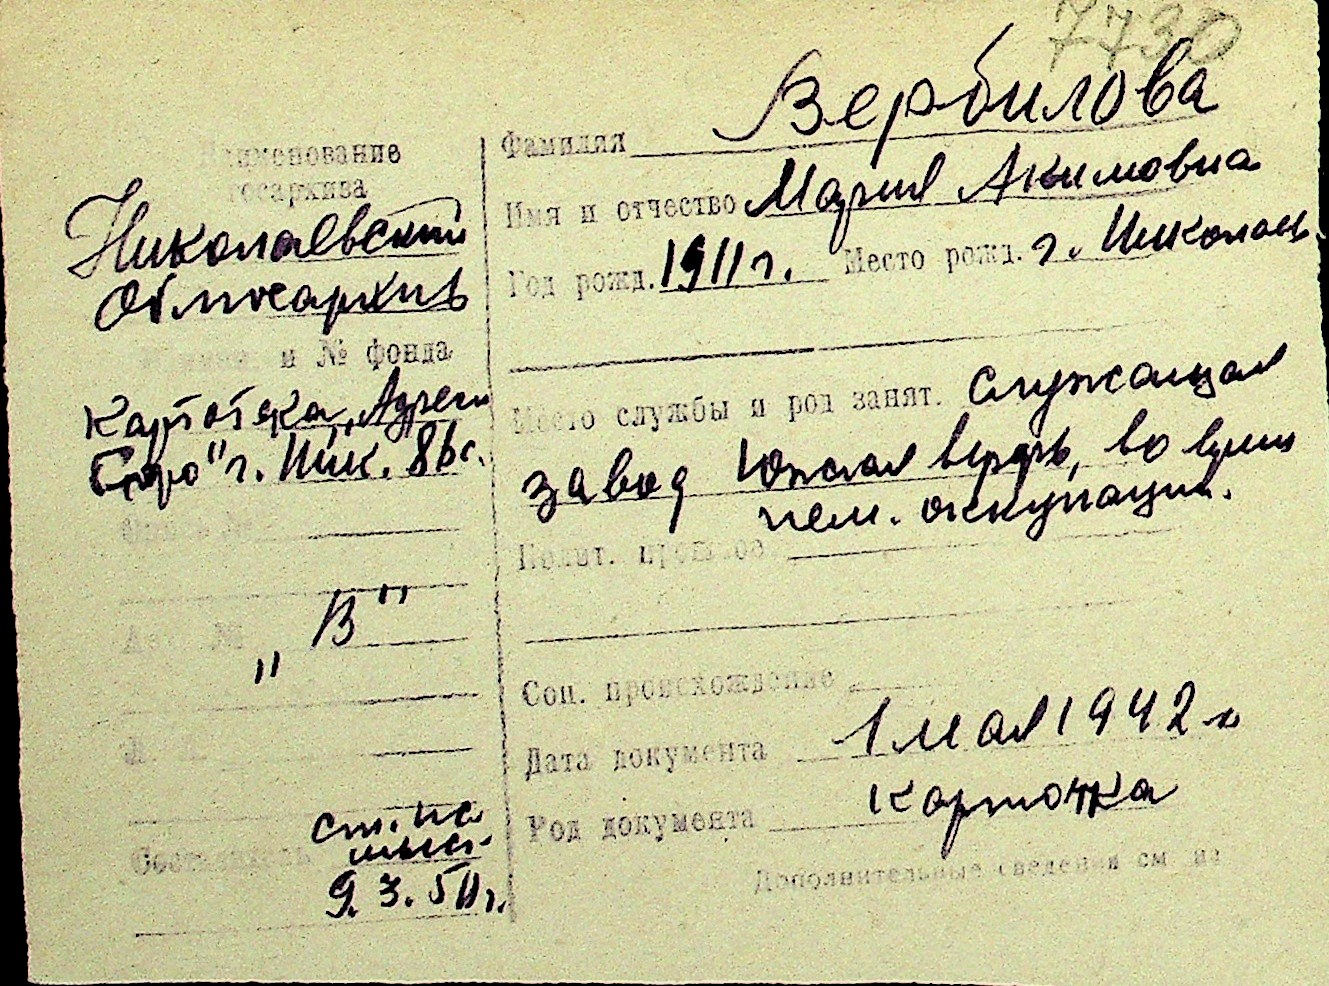 7730
Наименование
госархива
Николаевский
Облгосархив
и № фонда
Картотека „Адресн
Бюро" г. Ник. 86с.
Опись №
„В"
Составитель
9.3.50г.
Фамилия Вербилова
Имя и отчество Мария Акимовна
Год рожд. 1911г. Место рожд. г. Николаев.
Место службы и род занят. служащая
завод Южная верфь, во время
нем. оккупации.
Полит. прошлое
Соц. происхождение
Дата документа 1 мая 1942 г.
Род документа карточка
Дополнительные сведения см на